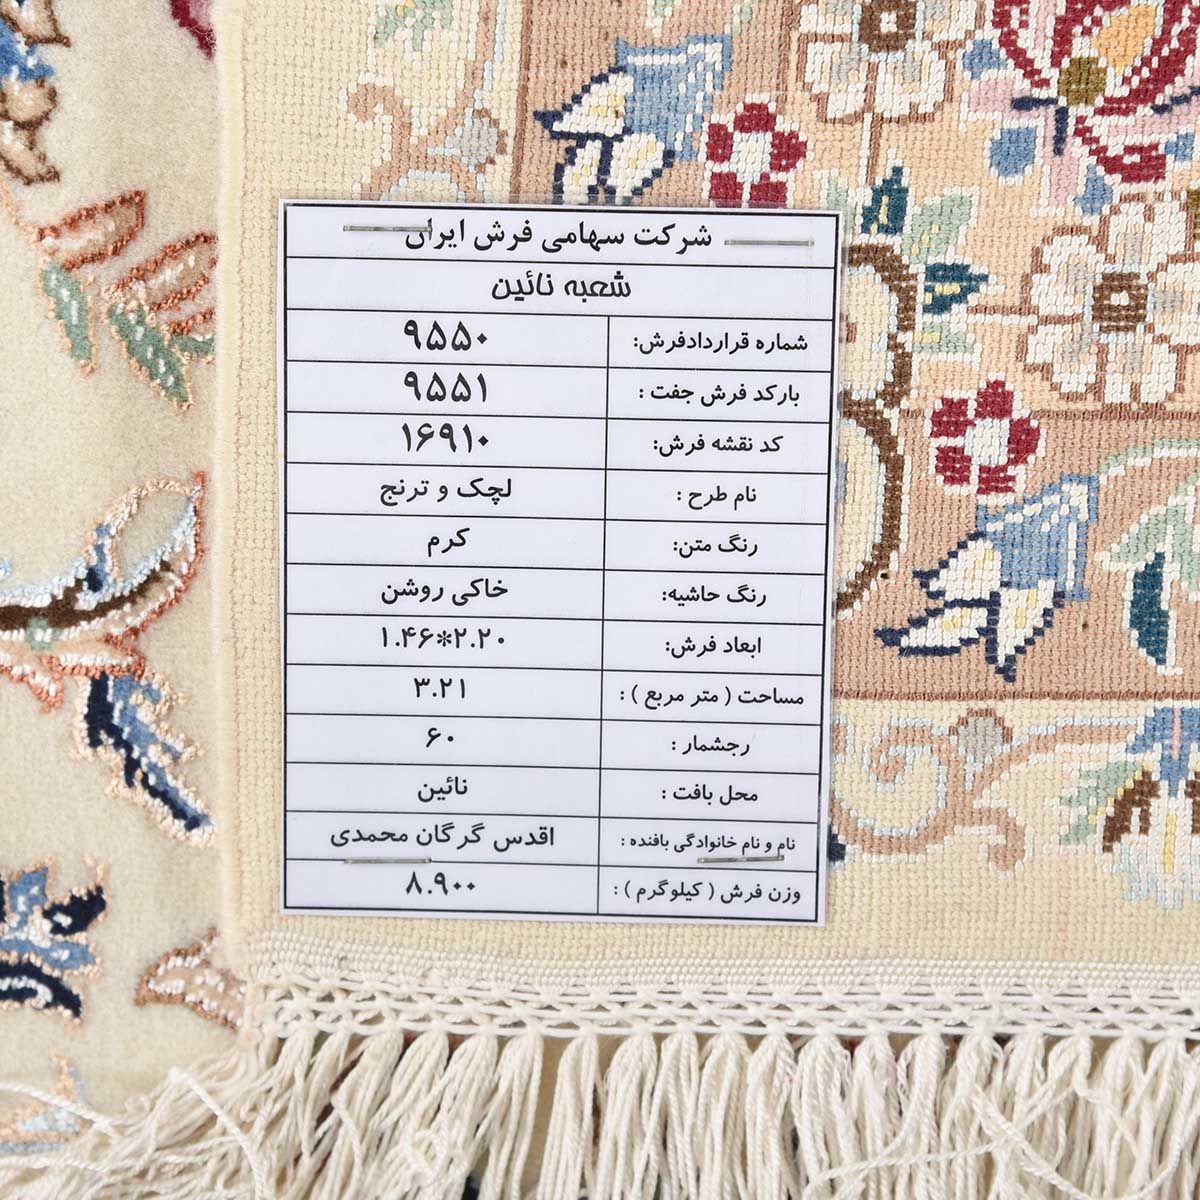 شرکت سهامی فرش ایران
شعبه نائین
شماره قراردادفرش: ۹۵۵۰
بارکد فرش جفت : ۹۵۵۱
کد نقشه فرش: ۱۶۹۱۰
نام طرح : لچک و ترنج
رنگ متن: کرم
رنگ حاشیه: خاکی روشن
ابعاد فرش: ۱.۴۶*۲.۲۰
مساحت ( متر مربع ) : ۳.۲۱
رجشمار : ۶۰
محل بافت : نائین
نام و نام خانوادگی بافنده : اقدس گرگان محمدی
وزن فرش ( کیلوگرم ) : ۸.۹۰۰